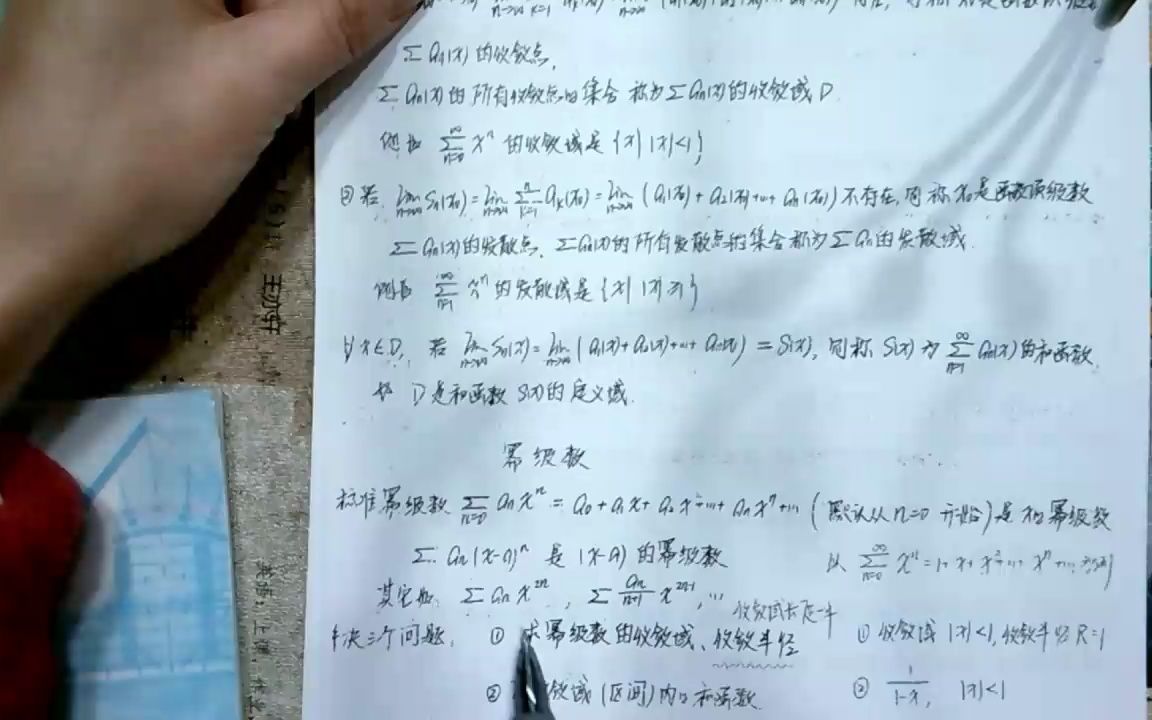 ∑ aₙ(x) 的收敛点,
∑ aₙ(x) 的所有收敛点的集合 称为 ∑ aₙ(x) 的收敛域 D.
例如 ∑_{n=0}^{∞} xⁿ 的收敛域是 {x| |x|<1}
② 若 lim_{n→∞} Sₙ(x₀) = lim_{n→∞} ∑_{k=1}^{n} aₖ(x₀) = lim_{n→∞} (a₁(x₀) + a₂(x₀) + ... + aₙ(x₀)) 不存在, 则称 x₀ 是函数项级数
∑ aₙ(x) 的发散点, ∑ aₙ(x) 的所有发散点的集合称为 ∑ aₙ 的发散域.
例如 ∑_{n=1}^{∞} xⁿ 的发散域是 {x| |x|≥1}
∀ x∈D, 若 lim_{n→∞} Sₙ(x) = lim_{n→∞} (a₁(x) + a₂(x) + ... + aₙ(x)) = S(x), 则称 S(x) 为 ∑_{n=1}^{∞} aₙ(x) 的和函数,
D 是和函数 S(x) 的定义域.
幂级数
标准幂级数 ∑_{n=0}^{∞} aₙxⁿ = a₀ + a₁x + a₂x² + ... + aₙxⁿ + ... (默认从 n=0 开始) 是 x 的幂级数
∑ aₙ(x-a)ⁿ 是 (x-a) 的幂级数 以 ∑_{n=0}^{∞} xⁿ = 1 + x + x² + ... xⁿ + ... 为例
其它如, ∑ aₙ x²ⁿ, ∑ aₙ/(n+1) x²ⁿ⁺¹, ...
收敛域长度一半
解决三个问题: ① 求幂级数的收敛域、收敛半径 ① 收敛域 |x|<1, 收敛半径 R=1
② 敛域 (区间) 内 和函数. ② 1/(1-x), |x|<1